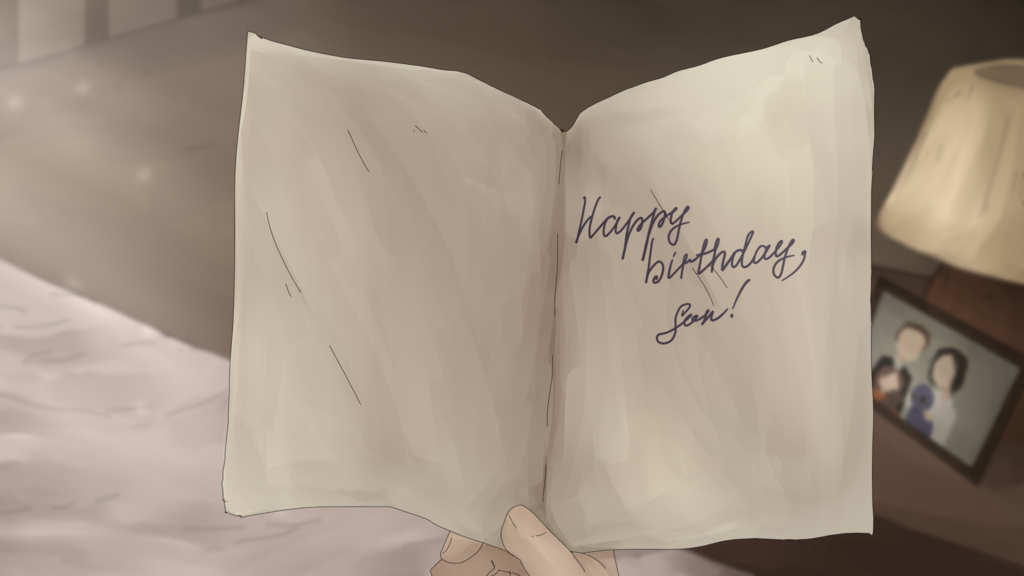 Happy
birthday,
son!